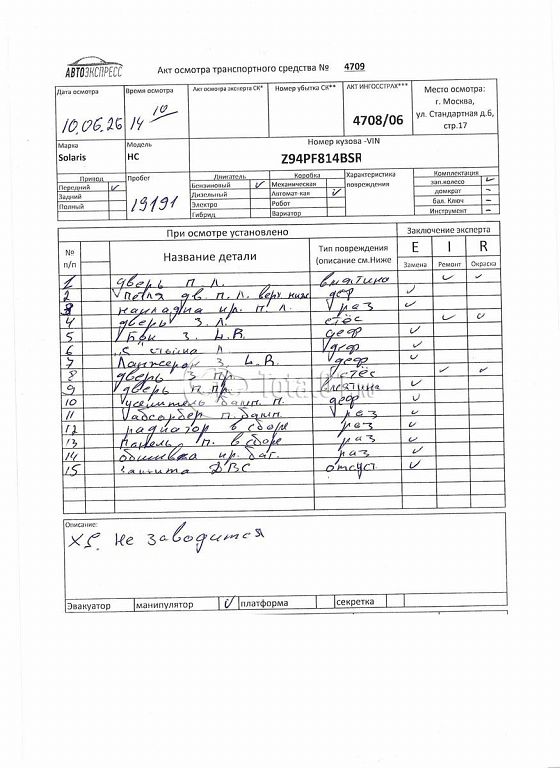 АВТОЭКСПРЕСС
Акт осмотра транспортного средства № 4709
Дата осмотра
10.06.26
Время осмотра
14 10
Акт осмотра эксперта СК*
Номер убытка СК**
АКТ ИНГОССТРАХ***
4708/06
Место осмотра:
г. Москва,
ул. Стандартная д.6,
стр.17
Марка
Solaris
Модель
HC
Номер кузова -VIN
Z94PF814BSR
Привод
Передний
Задний
Полный
Пробег
19191
Двигатель
Бензиновый
Дизельный
Электро
Гибрид
Коробка
Механическая
Автомат-кая
Робот
Вариатор
Характеристика
повреждения
Комплектация
зап.колесо
домкрат -
бал. Ключ -
Инструмент -
При осмотре установлено
Заключение эксперта
№
п/п
Название детали
Тип повреждения
(описание см.Ниже
E I R
Замена Ремонт Окраска
1 дверь п. л. вмятина
2 петля дв. п. л. верх. ниж деф
3 накладка кр. п. л. раз
4 дверь з. л.
5 Бок з. L. В. деф
6 стойка л. деф
7 Лонжерон з. L. В. деф
8 дверь з пр.
9 дверь п. пр. вмятина
10 усилитель бамп. п. деф
11 абсорбер п. бамп. раз
12 радиатор в сборе раз
13 панель п. в сборе раз
14 обшивка кр. баг. раз
15 защита ДВС отсуст
Total
Описание:
Не заводится
Эвакуатор манипулятор платформа секретка